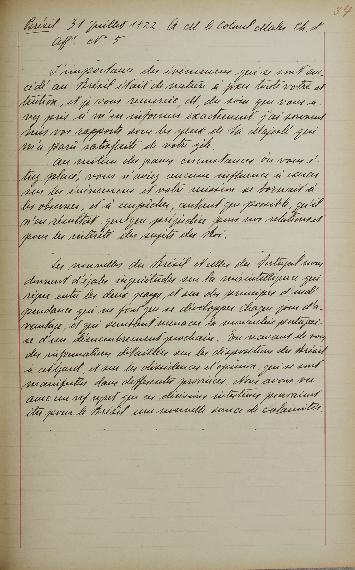 34
Brésil 31 juillet 1822. A cet le Colonel Maler Ch. d'
Aff.es N° 5
L'importance des évènemens qui se sont suc-
cédé au Brésil était de nature à fixer toute votre at-
tention, et je vous remercie, M., du soin que vous a-
vez pris à m'en informer exactement j'ai souvent
mis vos rapports sous les yeux de Sa Majesté qui
m'a paru satisfaite de votre zèle.
Au milieu des graves circonstances où vous é-
tiez placé, vous n'aviez aucune influence à exercer
sur les évènemens et votre mission se bornait à
les observer, et à empêcher, autant que possible, qu'il
n'en résultât quelque préjudice pour nos relations et
pour les intérêts des sujets du Roi.
Les nouvelles du Brésil et celles du Portugal nous
donnent d'égales inquiétudes sur la mésintelligence qui
règne entre les deux pays, et sur des principes d'indé-
pendance qui ne font que se développer chaque jour d'a-
vantage, et qui semblent menacer la monarchie portugai-
se d'un démembrement prochain. En recevant de vous
des informations détaillées sur les dispositions du Brésil
à cet égard, et sur les dissidences d'opinions qui se sont
manifestées dans différentes provinces Nous avons vu
avec un vif regret que ces divisions intestines pouvaient
être pour le Brésil une nouvelle source de calamités